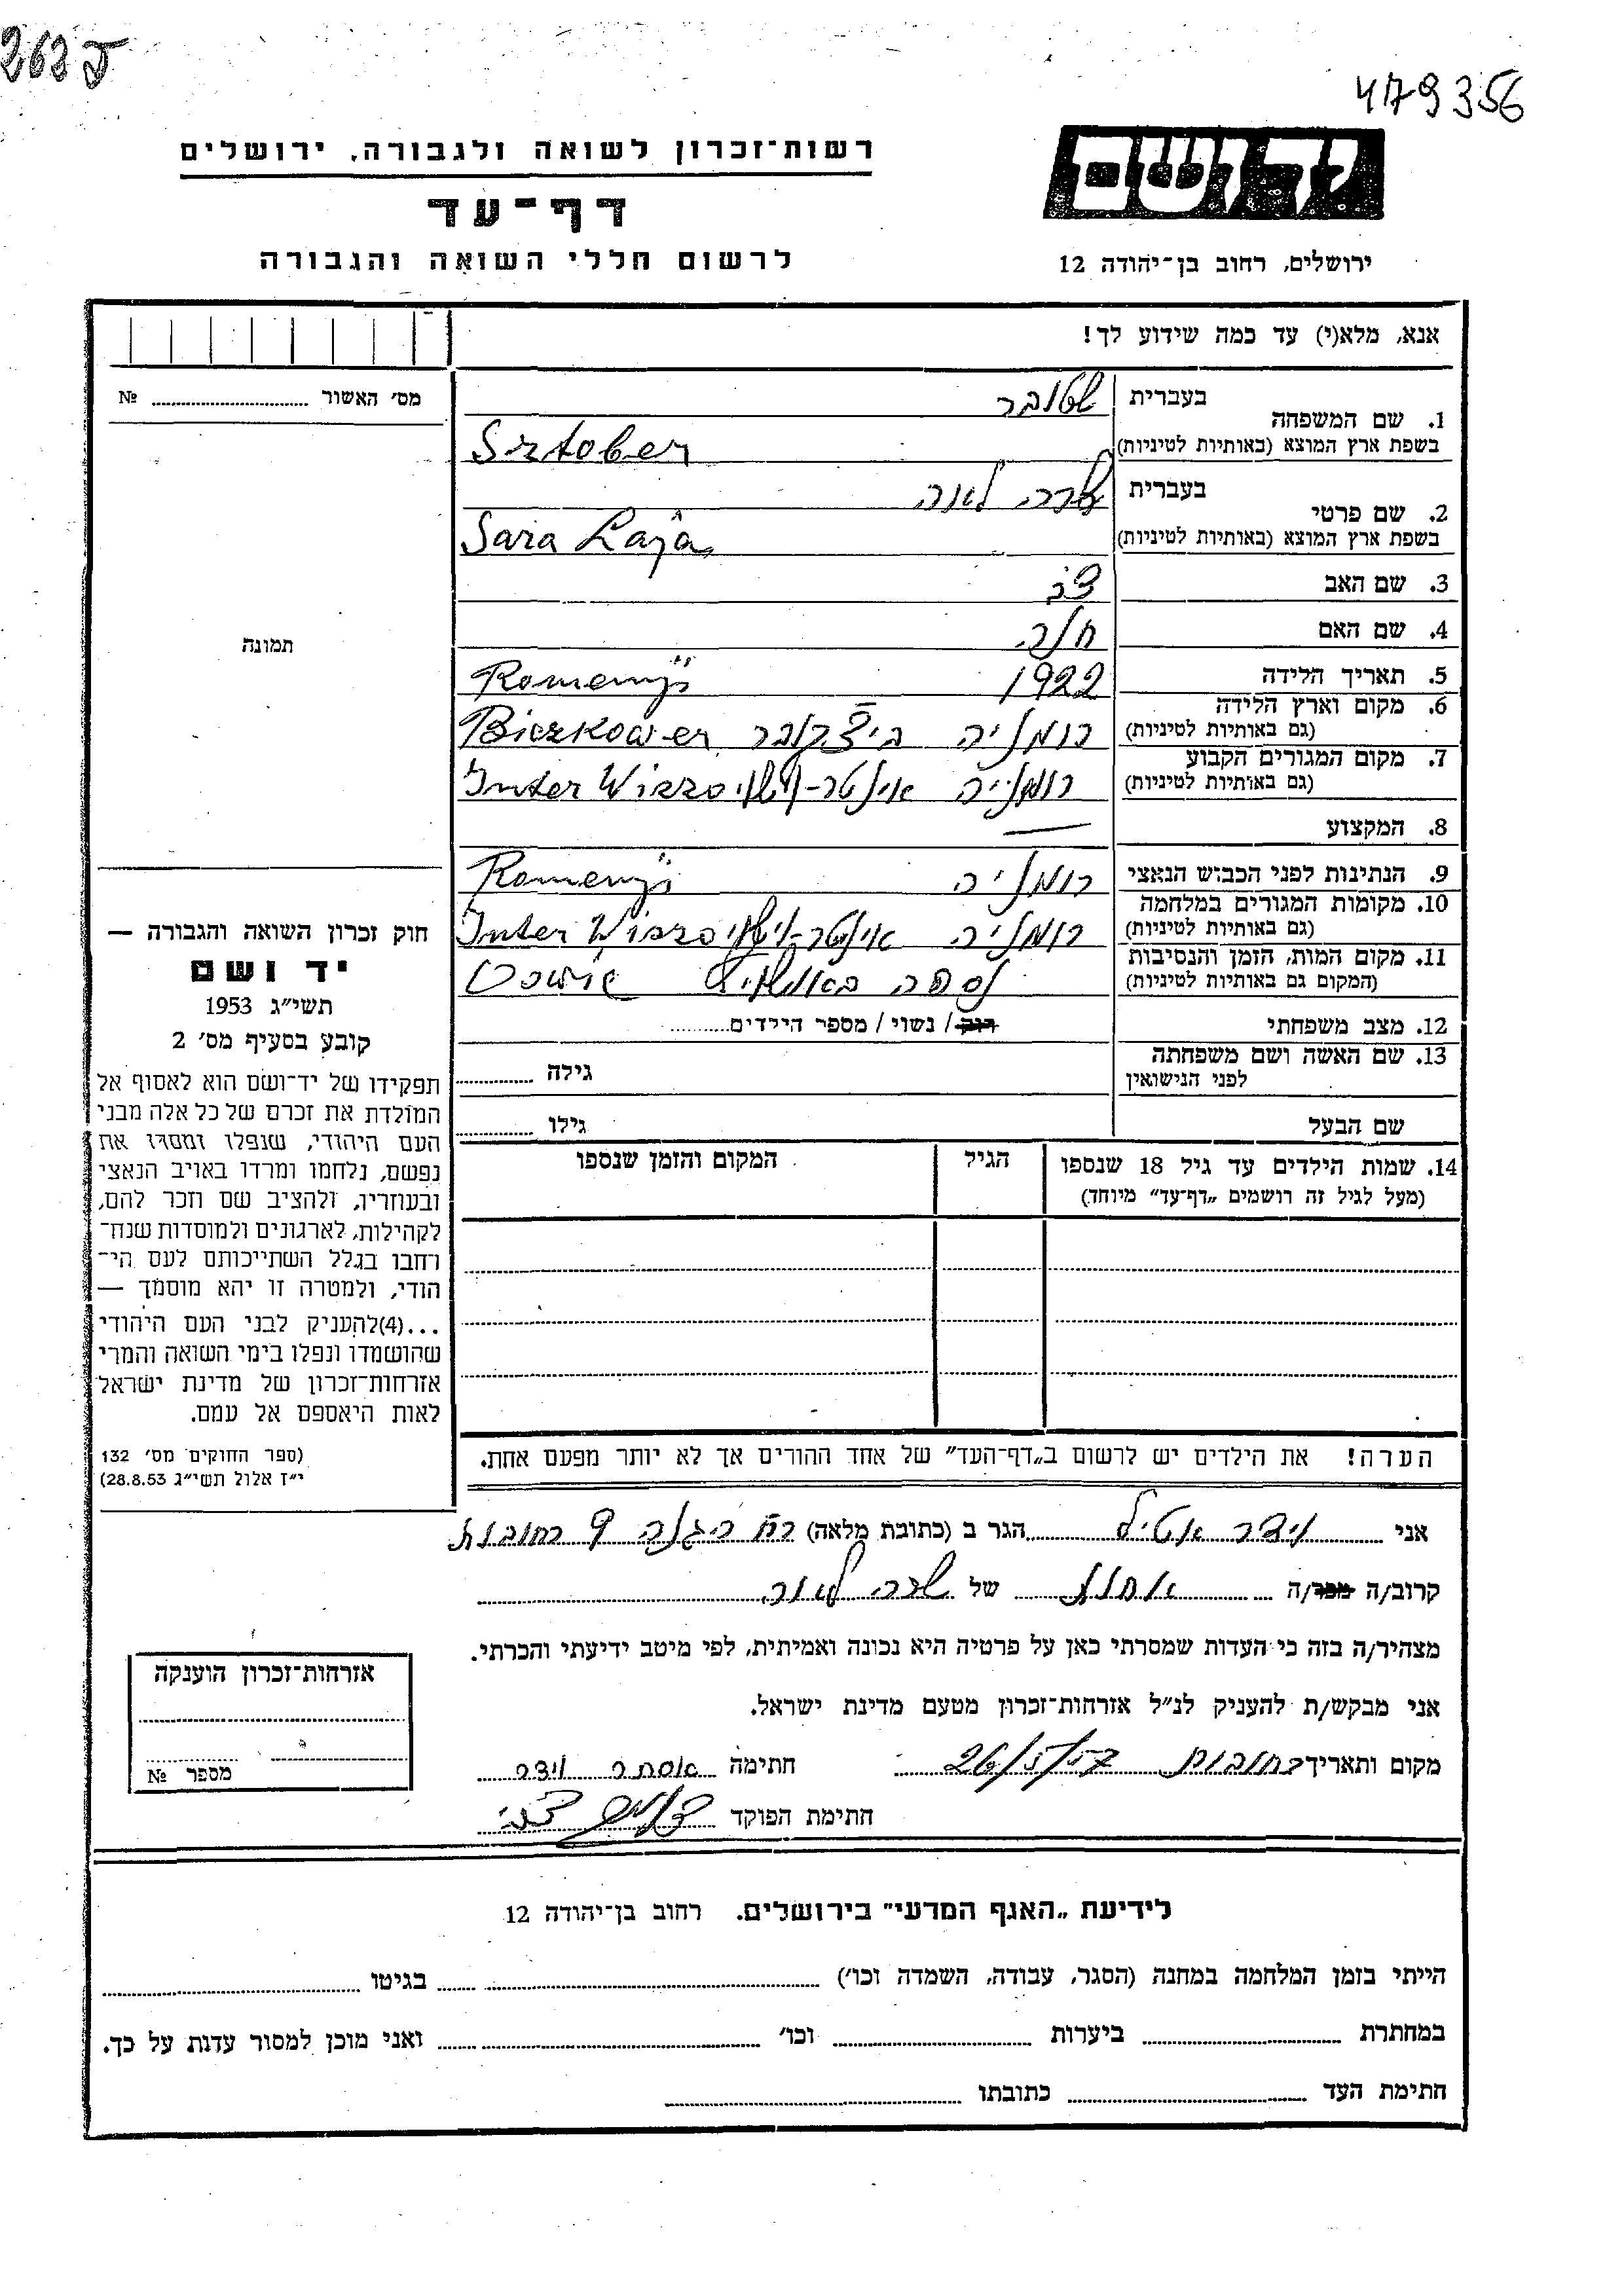 262 ש
479356
רשות-זכרון לשואה ולגבורה, ירושלים
דף-עד
לרשום חללי השואה והגבורה
יד ושם
ירושלים, רחוב בן-יהודה 12
אנא, מלא(י) עד כמה שידוע לך!
מס' האשור № 
תמונה
1. שם המשפחה
בעברית שטובר
בשפת ארץ המוצא (באותיות לטיניות) Sztober
2. שם פרטי
בעברית שרה לאה
בשפת ארץ המוצא (באותיות לטיניות) Sara Laja
3. שם האב צבי
4. שם האם חוה
5. תאריך הלידה 1922 Romenÿ
6. מקום וארץ הלידה רומניה
(גם באותיות לטיניות)
7. מקום המגורים הקבוע רומניה
(גם באותיות לטיניות)
8. המקצוע —
9. הנתינות לפני הכבוש הנאצי רומניה Romenÿ
10. מקומות המגורים במלחמה רומניה
(גם באותיות לטיניות)
11. מקום המות, הזמן והנסיבות נספה באושויץ
(המקום גם באותיות לטיניות)
12. מצב משפחתי רוק / נשוי / מספר הילדים
13. שם האשה ושם משפחתה
לפני הנישואין גילה
שם הבעל גילו
14. שמות הילדים עד גיל 18 שנספו הגיל המקום והזמן שנספו
(מעל לגיל זה רושמים „דף-עד" מיוחד)
הערה! את הילדים יש לרשום ב„דף-העד" של אחד ההורים אך לא יותר מפעם אחת.
חוק זכרון השואה והגבורה —
יד ושם
תשי"ג 1953
קובע בסעיף מס' 2
תפקידו של יד-ושם הוא לאסוף אל
המולדת את זכרם של כל אלה מבני
העם היהודי, שנפלו ומסרו את
נפשם, נלחמו ומרדו באויב הנאצי
ובעוזריו, ולהציב שם וזכר להם,
לקהילות, לארגונים ולמוסדות שנח־
רחבו בגלל השתייכותם לעם הי־
הודי, ולמטרה זו יהא מוסמך —
...(4)להעניק לבני העם היהודי
שהושמדו ונפלו בימי השואה והמרי
אזרחות-זכרון של מדינת ישראל
לאות היאספם אל עמם.
(ספר החוקים מס' 132
י"ז אלול תשי"ג 28.8.53)
אני וידר הגר ב (כתובת מלאה) רח הגנה 9 רחובות
קרוב/ה מכר/ה אחות של שרה לאה
מצהיר/ה בזה כי העדות שמסרתי כאן על פרטיה היא נכונה ואמיתית, לפי מיטב ידיעתי והכרתי.
אני מבקש/ת להעניק לנ"ל אזרחות-זכרון מטעם מדינת ישראל.
מקום ותאריך רחובות חתימה אסתר וידר
חתימת הפוקד
אזרחות-זכרון הוענקה
מספר №
לידיעת „האגף המדעי" בירושלים. רחוב בן-יהודה 12
הייתי בזמן המלחמה במחנה (הסגר, עבודה, השמדה וכו') בגיטו
במחתרת ביערות וכו' ואני מוכן למסור עדות על כך.
חתימת העד כתובתו